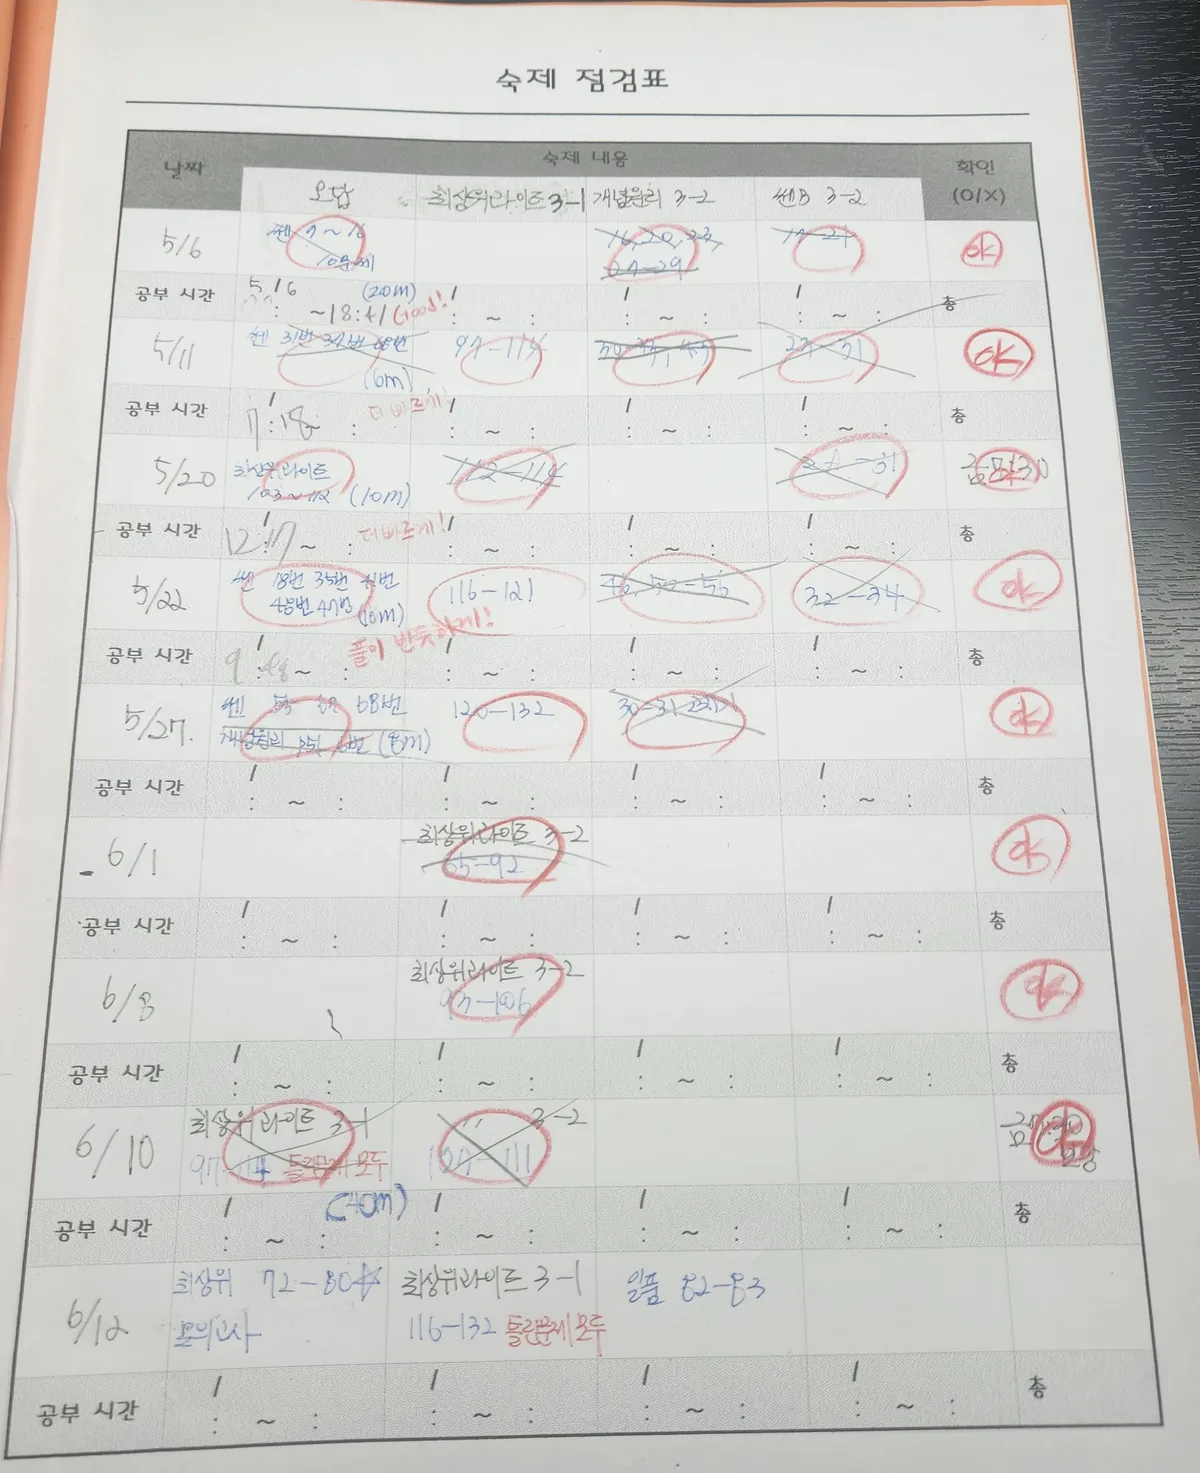 숙제 점검표
날짜 숙제 내용 확인 (O/X)
오답 최상위라이트 3-1 개념원리 3-2 쎈B 3-2
5/6 쎈 9~16 16, 20, 23, 17-21 ok
10문제 27-29
공부 시간 5/6 (20m) / : ~ : / : ~ : / : ~ : 총
~18:41 Good!
5/11 쎈 31번 37번 97-114 ok
(6m)
공부 시간 / 7:18 더 빠르게! / : ~ : / : ~ : / : ~ : 총
5/20 최상위라이트 112-114 21-31
103~112 (10m)
공부 시간 / 12:17 ~ : 더 빠르게! / : ~ : / : ~ : / : ~ : 총
5/22 쎈 18번 35번 116-121 46, 50-56 32-34 ok
48번 47번 (10m)
풀이 반듯하게!
공부 시간 / ~ : / : ~ : / : ~ : / : ~ : 총
5/27. 쎈 68번 120-132 30-31 ok
개념원리 (8m)
공부 시간 / : ~ : / : ~ : / : ~ : / : ~ : 총
6/1 최상위라이트 3-2 ok
65-92
공부 시간 / : ~ : / : ~ : / : ~ : / : ~ : 총
6/8 최상위라이트 3-2 ok
93-106
공부 시간 / : ~ : / : ~ : / : ~ : / : ~ : 총
6/10 최상위라이트 3-1 〃 3-2
97-114 틀린문제 모두 107-111
(40m)
공부 시간 / : ~ : / : ~ : / : ~ : / : ~ : 총
6/12 최상위 72-80 최상위라이트 3-1 일품 82-83
모의고사 116-132 틀린문제 모두
공부 시간 / : ~ : / : ~ : / : ~ : / : ~ : 총